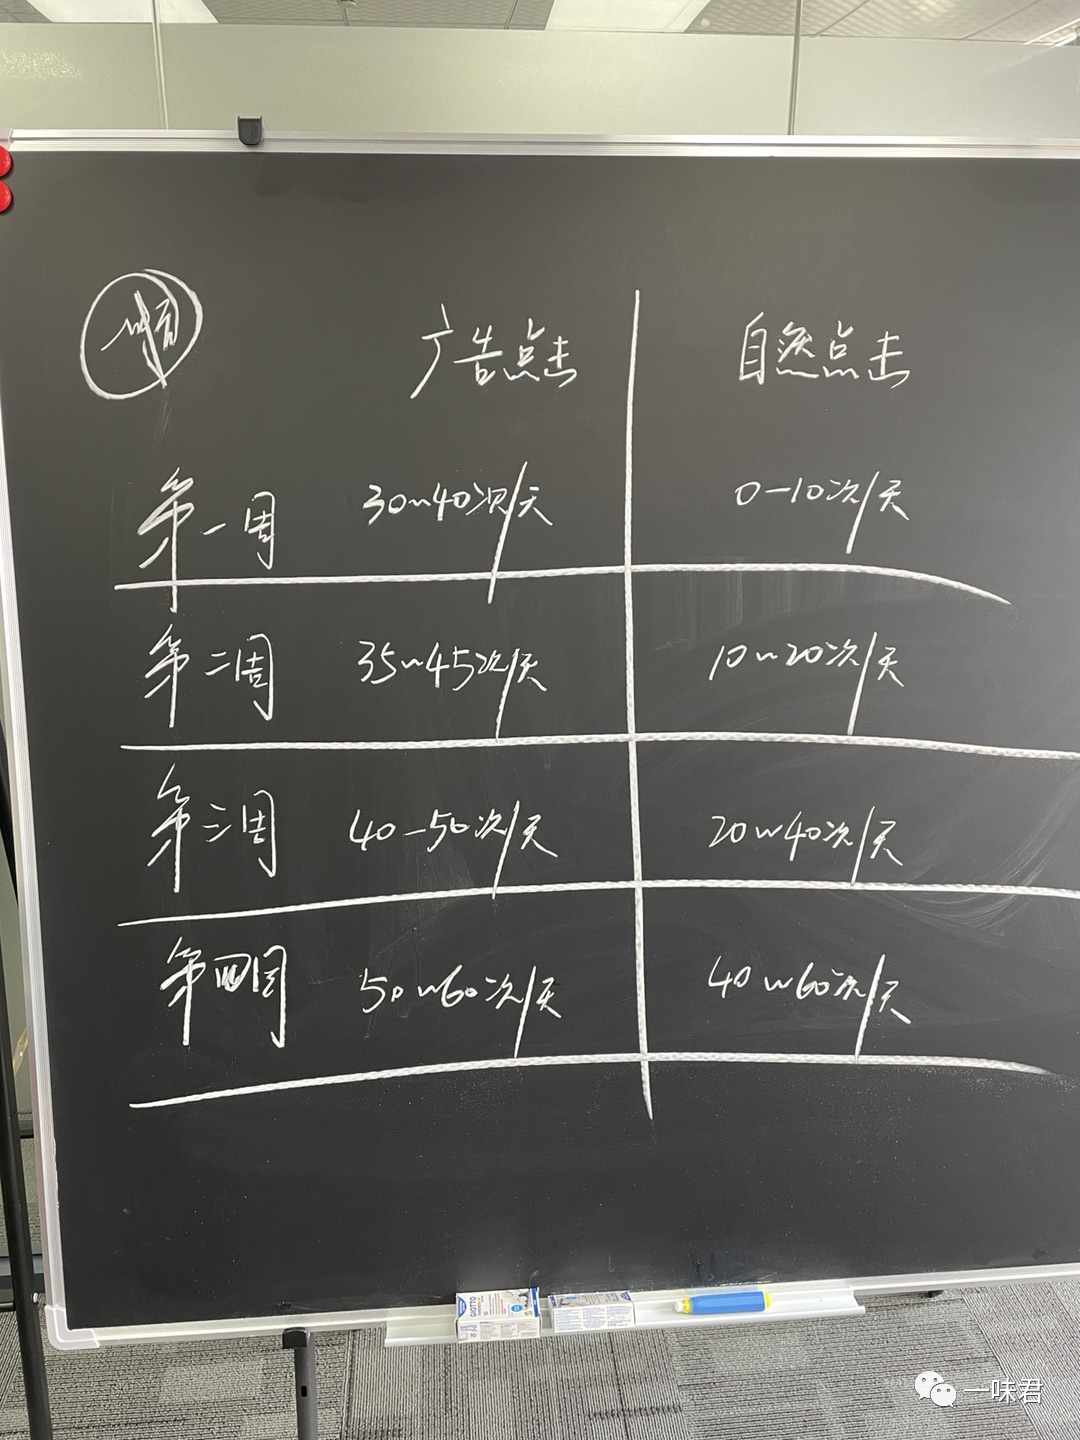 广告点击 自然点击
第一周 30~40次/天 0-10次/天
第二周 35~45次/天 10~20次/天
第三周 40-50次/天 20~40次/天
第四周 50~60次/天 40~60次/天
GIOTTO
一味君